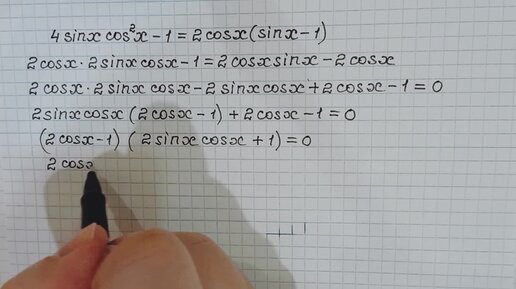 4 sinx cos²x − 1 = 2 cosx (sinx − 1)
2 cosx · 2 sinx cosx − 1 = 2 cosx sinx − 2 cosx
2 cosx · 2 sinx cosx − 2 sinx cosx + 2 cosx − 1 = 0
2 sinx cosx (2 cosx − 1) + 2 cosx − 1 = 0
(2 cosx − 1) (2 sinx cosx + 1) = 0
2 cosx